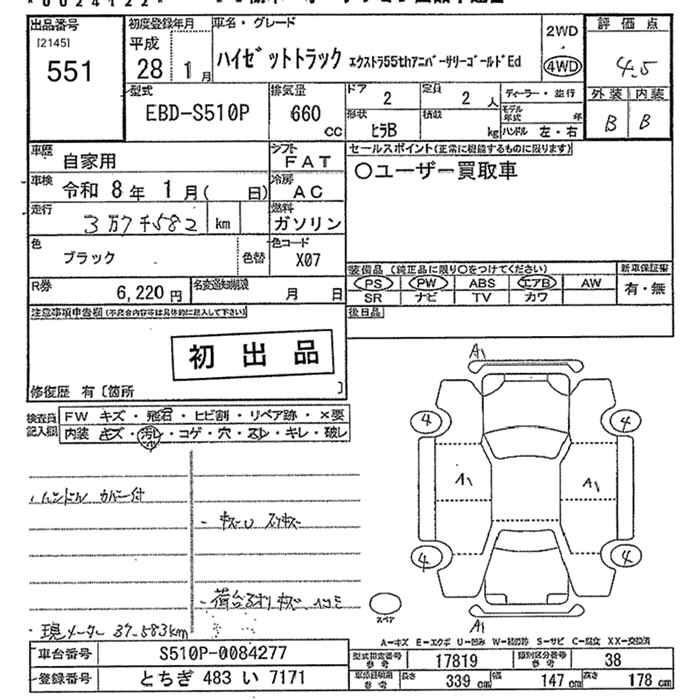 出品番号
[2145]
551
初度登録年月
平成
28 1 月
車名・グレード
ハイゼットトラック エクストラ55thアニバーサリーゴールドEd
2WD
4WD
評価点
4.5
外装 内装
B B
型式
EBD-S510P
排気量
660
cc
ドア
2
定員
2 人
形状
ヒラB
積載
kg
ディーラー・並行
モデル年式 年
ハンドル 左・右
車歴
自家用
シフト
FAT
車検
令和 8年 1月( 日)
冷房
AC
走行
3万7千582 km
燃料
ガソリン
色
ブラック
色替
色コード
X07
R券
6,220 円
名変通知期限
月 日
セールスポイント(正常に機能するものに限ります)
○ユーザー買取車
装備品 (純正品に限り○をつけてください)
PS PW ABS エアB AW
SR ナビ TV カワ
新車保証書
有・無
後日品
注意事項申告欄(不具合内容等は具体的に記入して下さい)
初出品
修復歴 有〔箇所 〕
検査員記入欄
FW キズ・飛石・ヒビ割・リペア跡・×要
内装 キズ・汚レ・コゲ・穴・スレ・キレ・破レ
ハンドル カバー付
・キズU スリキズ
・荷台
・現メーター 37.583km
A1
4 4
A1 A1
4 4
スペア
A1
A-キズ E-エクボ U-凹み W-補修跡 S-サビ C-腐食 XX-交換済
車台番号 S510P-0084277
登録番号 とちぎ 483 い 7171
型式指定番号 参考 17819
類別区分番号 参考 38
車両諸元 参考 長さ 339 cm 幅 147 cm 高さ 178 cm